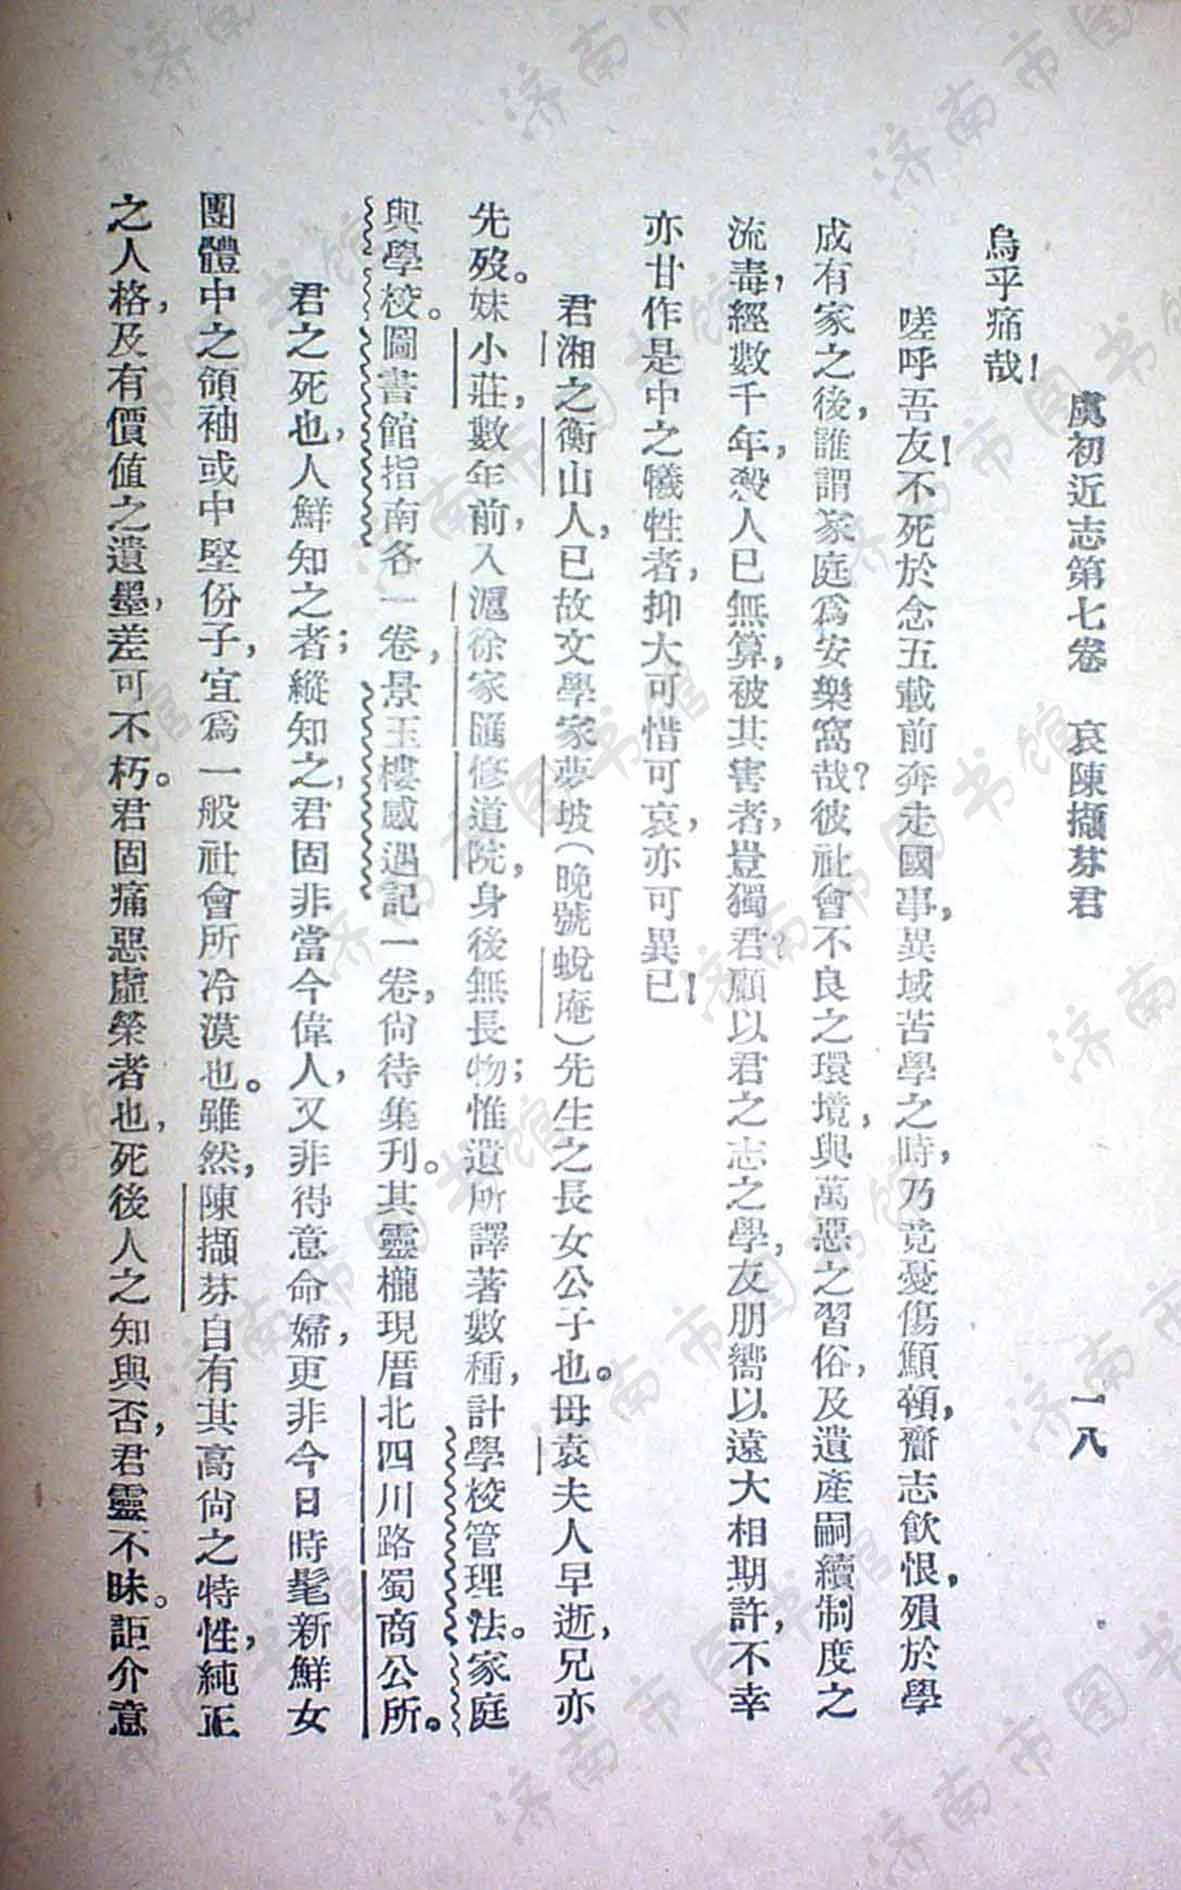 虞初近志第七卷　哀陳擷芬君　一八
烏乎痛哉!
嗟呼吾友!不死於念五載前奔走國事,異域苦學之時,乃竟憂傷顦顇,齎志飲恨,殞於學
成有家之後,誰謂家庭爲安樂窩哉?彼社會不良之環境,與萬惡之習俗,及遺產嗣續制度之
流毒,經數千年,殺人已無算,被其害者,豈獨君?顧以君之志之學,友朋嚮以遠大相期許,不幸
亦甘作是中之犧牲者,抑大可惜可哀,亦可異已!
君湘之衡山人,已故文學家夢坡(晚號蛻庵)先生之長女公子也。母袁夫人早逝,兄亦
先歿。妹小莊,數年前,入滬徐家匯修道院,身後無長物;惟遺所譯著數種,計學校管理法。家庭
與學校。圖書館指南各一卷,景玉樓感遇記一卷,尙待集刊。其靈櫬現厝北四川路蜀商公所。
君之死也,人鮮知之者;縱知之,君固非當今偉人,又非得意命婦,更非今日時髦新鮮女
團體中之領袖或中堅份子,宜爲一般社會所冷漠也。雖然,陳擷芬自有其高尙之特性,純正
之人格,及有價值之遺墨,差可不朽。君固痛惡虛榮者也,死後人之知與否,君靈不昧。詎介意
济南市图书馆